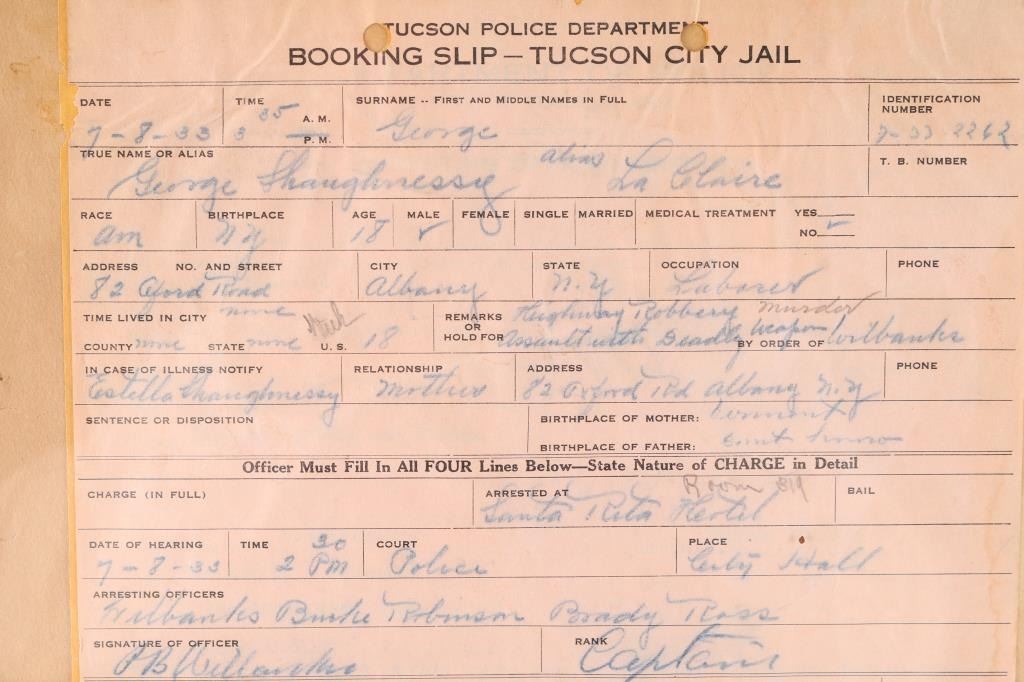 TUCSON POLICE DEPARTMENT
BOOKING SLIP — TUCSON CITY JAIL
DATE TIME 35 A. M. SURNAME -- FIRST AND MIDDLE NAMES IN FULL IDENTIFICATION NUMBER
7-8-33 3 P. M. George 7-33 2262
TRUE NAME OR ALIAS alias T. B. NUMBER
George Shaughnessy La Claire
RACE BIRTHPLACE AGE MALE FEMALE SINGLE MARRIED MEDICAL TREATMENT YES
am NY 18 ✓ NO ✓
ADDRESS NO. AND STREET CITY STATE OCCUPATION PHONE
82 Oxford Road Albany N.Y Laborer
TIME LIVED IN CITY none REMARKS OR HOLD FOR Highway Robbery Murder
COUNTY none STATE none U. S. 18 Assault with Deadly Weapon BY ORDER OF Wilbanks
IN CASE OF ILLNESS NOTIFY RELATIONSHIP ADDRESS PHONE
Estella Shaughnessy Mother 82 Oxford Rd Albany N.Y
SENTENCE OR DISPOSITION BIRTHPLACE OF MOTHER: Vermont
BIRTHPLACE OF FATHER:
Officer Must Fill In All FOUR Lines Below—State Nature of CHARGE in Detail
CHARGE (IN FULL) ARRESTED AT Room 319 BAIL
Santa Rita Hotel
DATE OF HEARING TIME 30 COURT PLACE
7-8-33 2 PM Police City Hall
ARRESTING OFFICERS
Wilbanks Burke Robinson Brady Ross
SIGNATURE OF OFFICER RANK
Wilbanks Captain